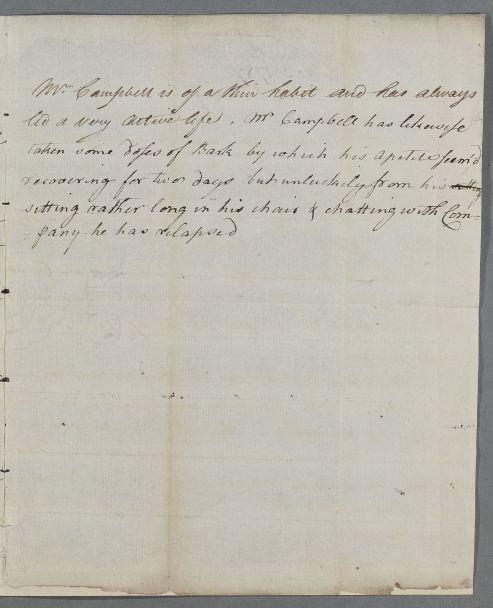 Mr Campbell is of a thin habit and has always
led a very active life. Mr Campbell has likewise
taken some doses of Bark by which his apetite seem'd
recovering for two days but unluckily from his
sitting rather long in his chair & chatting with Com=
=pany he has relapsed